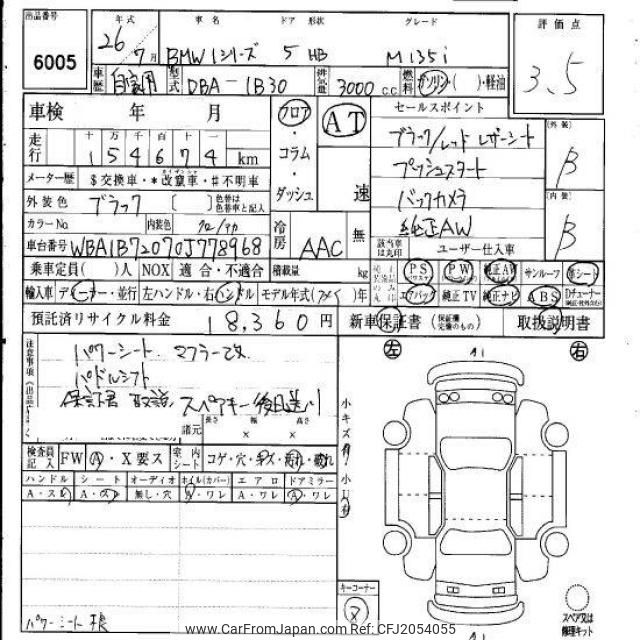 出品番号 年式 車名 ドア 形状 グレード 評価点
6005 26 7月 BMW 1シリーズ 5 HB M135i 3.5
車歴 自家用 型式 DBA-1B30 排気量 3000 c.c. 燃料 ガソリン( )・軽油
車検 年 月 フロア AT セールスポイント
走行 十 万 千 百 十 一 [外装]
1 5 4 6 7 4 km ・コラム ブラック/レッド レザーシート B
メーター歴 $交換車・*改竄車・#不明車 ・ダッシュ 速 プッシュスタート
外装色 ブラック [ ] 色替は色替車と記入 バックカメラ [内装]
カラーNo. 内装色 クロ/アカ 冷房 AAC 無 純正AW B
車台番号 WBA1B72070J778968 該当車は丸印 ユーザー仕入車
乗車定員( )人 NOX 適合・不適合 積載量 kg PS PW 純正AW サンルーフ 革シート
輸入車 ディーラー・並行 左ハンドル・右ハンドル モデル年式( )年 エアバック 純正TV 純正ナビ ABS Dチューナー
預託済リサイクル料金 18,360円 新車保証書 (保証書完備のもの) 取扱説明書
注意事項 パワーシート マフラー改 左 右
パドルシフト
保証書 取説 スペアキー後日送り
諸元 長さ 幅 高さ
× ×
小キズ有 小U有
検査員記入 FW A・X要ス 室内シート コゲ・穴・キズ・汚れ・破れ
ハンドル シート オーディオ ホイル(カバー) エアロ ドアミラー
A・スレ A・スレ 無し・穴 A・ワレ A・ワレ A・ワレ
キーコーナー
パワーシート スペア又は修理キット
www.CarFromJapan.com Ref: CFJ2054055